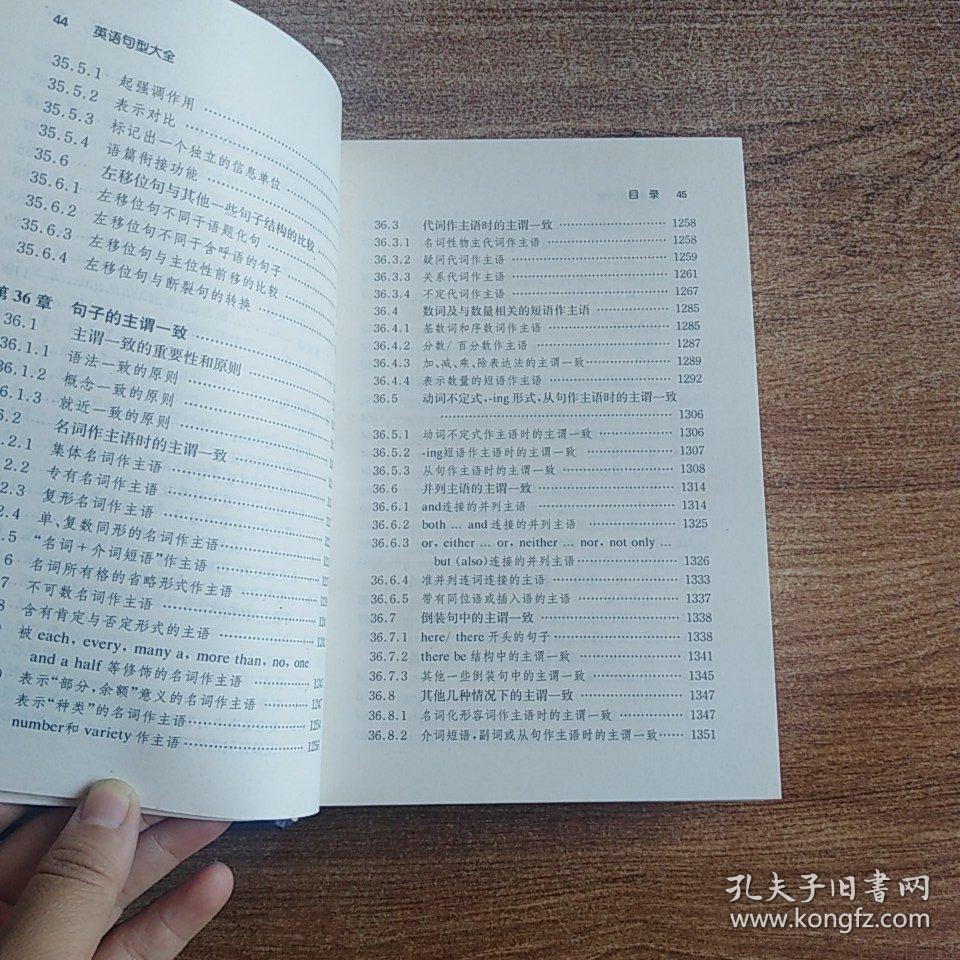 44 英语句型大全
35.5.1 起强调作用
35.5.2 表示对比
35.5.3 标记出一个独立的信息单位
35.5.4 语篇衔接功能
35.6 左移位句与其他一些句子结构的比较
35.6.1 左移位句不同于话题化句
35.6.2 左移位句不同于含呼语的句子
35.6.3 左移位句与主位性前移的比较
35.6.4 左移位句与断裂句的转换
第36章 句子的主谓一致
36.1 主谓一致的重要性和原则
36.1.1 语法一致的原则
36.1.2 概念一致的原则
36.1.3 就近一致的原则
6.2 名词作主语时的主谓一致
.2.1 集体名词作主语
.2.2 专有名词作主语
2.3 复形名词作主语
2.4 单、复数同形的名词作主语
.5 “名词+介词短语”作主语
6 名词所有格的省略形式作主语
7 不可数名词作主语
8 含有肯定与否定形式的主语
被 each, every, many a, more than, no, one
and a half 等修饰的名词作主语
表示“部分,余额”意义的名词作主语 1247
表示“种类”的名词作主语 1254
number和 variety 作主语 1256
目 录 45
36.3 代词作主语时的主谓一致 1258
36.3.1 名词性物主代词作主语 1258
36.3.2 疑问代词作主语 1259
36.3.3 关系代词作主语 1261
36.3.4 不定代词作主语 1267
36.4 数词及与数量相关的短语作主语 1285
36.4.1 基数词和序数词作主语 1285
36.4.2 分数/百分数作主语 1287
36.4.3 加、减、乘、除表达法的主谓一致 1289
36.4.4 表示数量的短语作主语 1292
36.5 动词不定式,-ing 形式,从句作主语时的主谓一致
1306
36.5.1 动词不定式作主语时的主谓一致 1306
36.5.2 -ing短语作主语时的主谓一致 1307
36.5.3 从句作主语时的主谓一致 1308
36.6 并列主语的主谓一致 1314
36.6.1 and连接的并列主语 1314
36.6.2 both … and 连接的并列主语 1325
36.6.3 or, either … or, neither … nor, not only …
but (also)连接的并列主语 1326
36.6.4 准并列连词连接的主语 1333
36.6.5 带有同位语或插入语的主语 1337
36.7 倒装句中的主谓一致 1338
36.7.1 here/ there 开头的句子 1338
36.7.2 there be 结构中的主谓一致 1341
36.7.3 其他一些倒装句中的主谓一致 1345
36.8 其他几种情况下的主谓一致 1347
36.8.1 名词化形容词作主语时的主谓一致 1347
36.8.2 介词短语,副词或从句作主语时的主谓一致 1351
孔夫子旧書网
www.kongfz.com